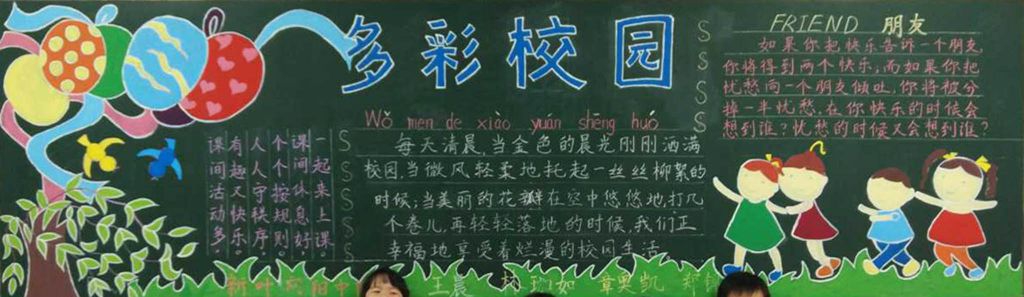 多彩校园
课间活动多
有趣又快乐
人人守楼序
个个按规则
课间休息好
一起来上课
Wǒ men de xiào yuán shēng huó
每天清晨,当金色的晨光刚刚洒满
校园,当微风轻柔地托起一丝丝柳絮的
时候,当美丽的花瓣在空中悠悠地打几
个卷儿,再轻轻落地的时候,我们正
幸福地享受着烂漫的校园生活
FRIEND 朋友
如果你把快乐告诉一个朋友,
你将得到两个快乐;而如果你把
忧愁向一个朋友倾吐,你将被分
掉一半忧愁.在你快乐的时候会
想到谁?忧愁的时候又会想到谁?
王晨 章奥凯